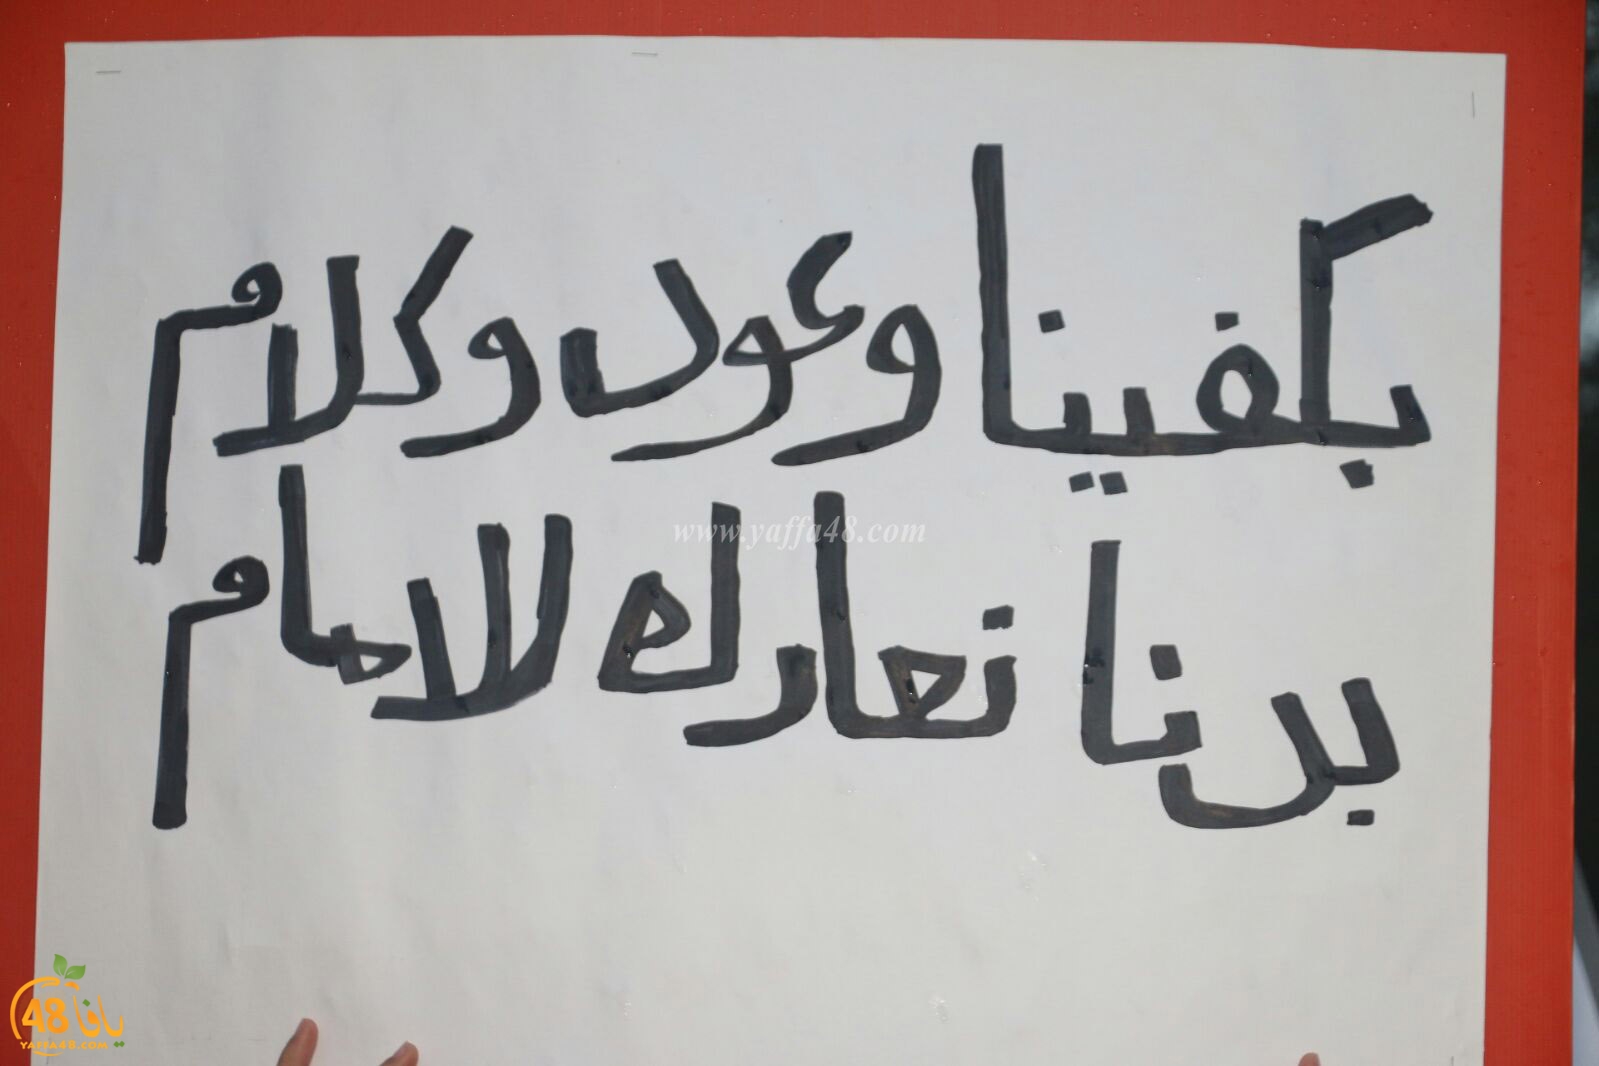 بكفينا وعود وكلام
بدنا نعارك للامام
www.yaffa48.com
48 يافا
YAFFA48.COM